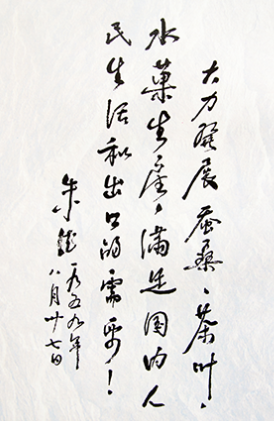 大力發展蚕桑、茶叶、
水菓生产，满足国内人
民生活和出口的需要！
朱德
一九五九年
八月廿七日